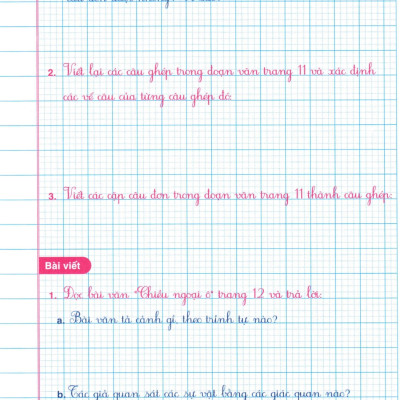 2. Viết lại các câu ghép trong đoạn văn trang 11 và xác định
các vế câu của từng câu ghép đó:
3. Viết các cặp câu đơn trong đoạn văn trang 11 thành câu ghép:
Bài viết
1. Đọc bài văn "Chiều ngoại ô" trang 12 và trả lời:
a. Bài văn tả cảnh gì, theo trình tự nào?
b. Tác giả quan sát các sự vật bằng các giác quan nào?